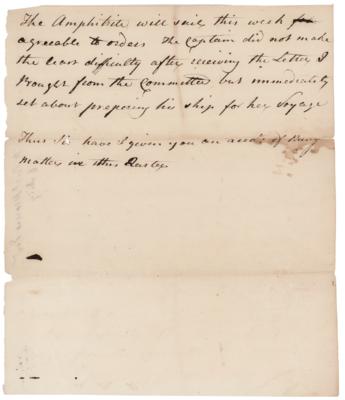 The Amphitrite will sail this week for
agreeable to orders The Captain did not make
the least difficulty after receiving the Letter I
brought from the Committee but immediately
set about preparing his ship for her Voyage
Thus Sir have I given you an acct. of
matters in this Quarter